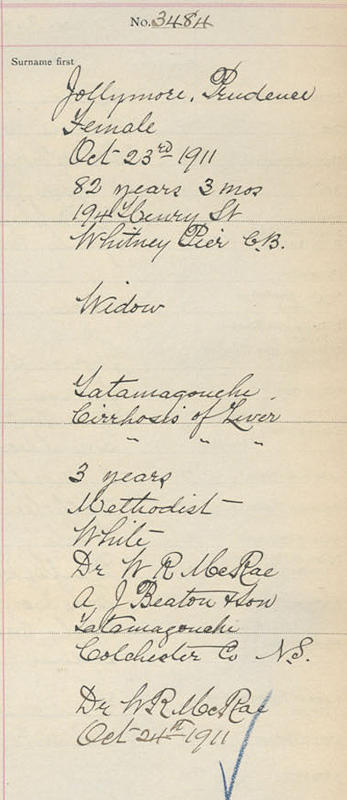 No. 3484
Surname first
Jollymore, Prudence
Female
Oct 23rd 1911
82 years 3 mos
194 Henry St
Whitney Pier C.B.
Widow
Tatamagouche
Cirrhosis of Liver
" " "
3 years
Methodist
White
Dr W R McRae
A J Beaton & Son
Tatamagouche
Colchester Co N.S.
Dr W R McRae
Oct 24th 1911